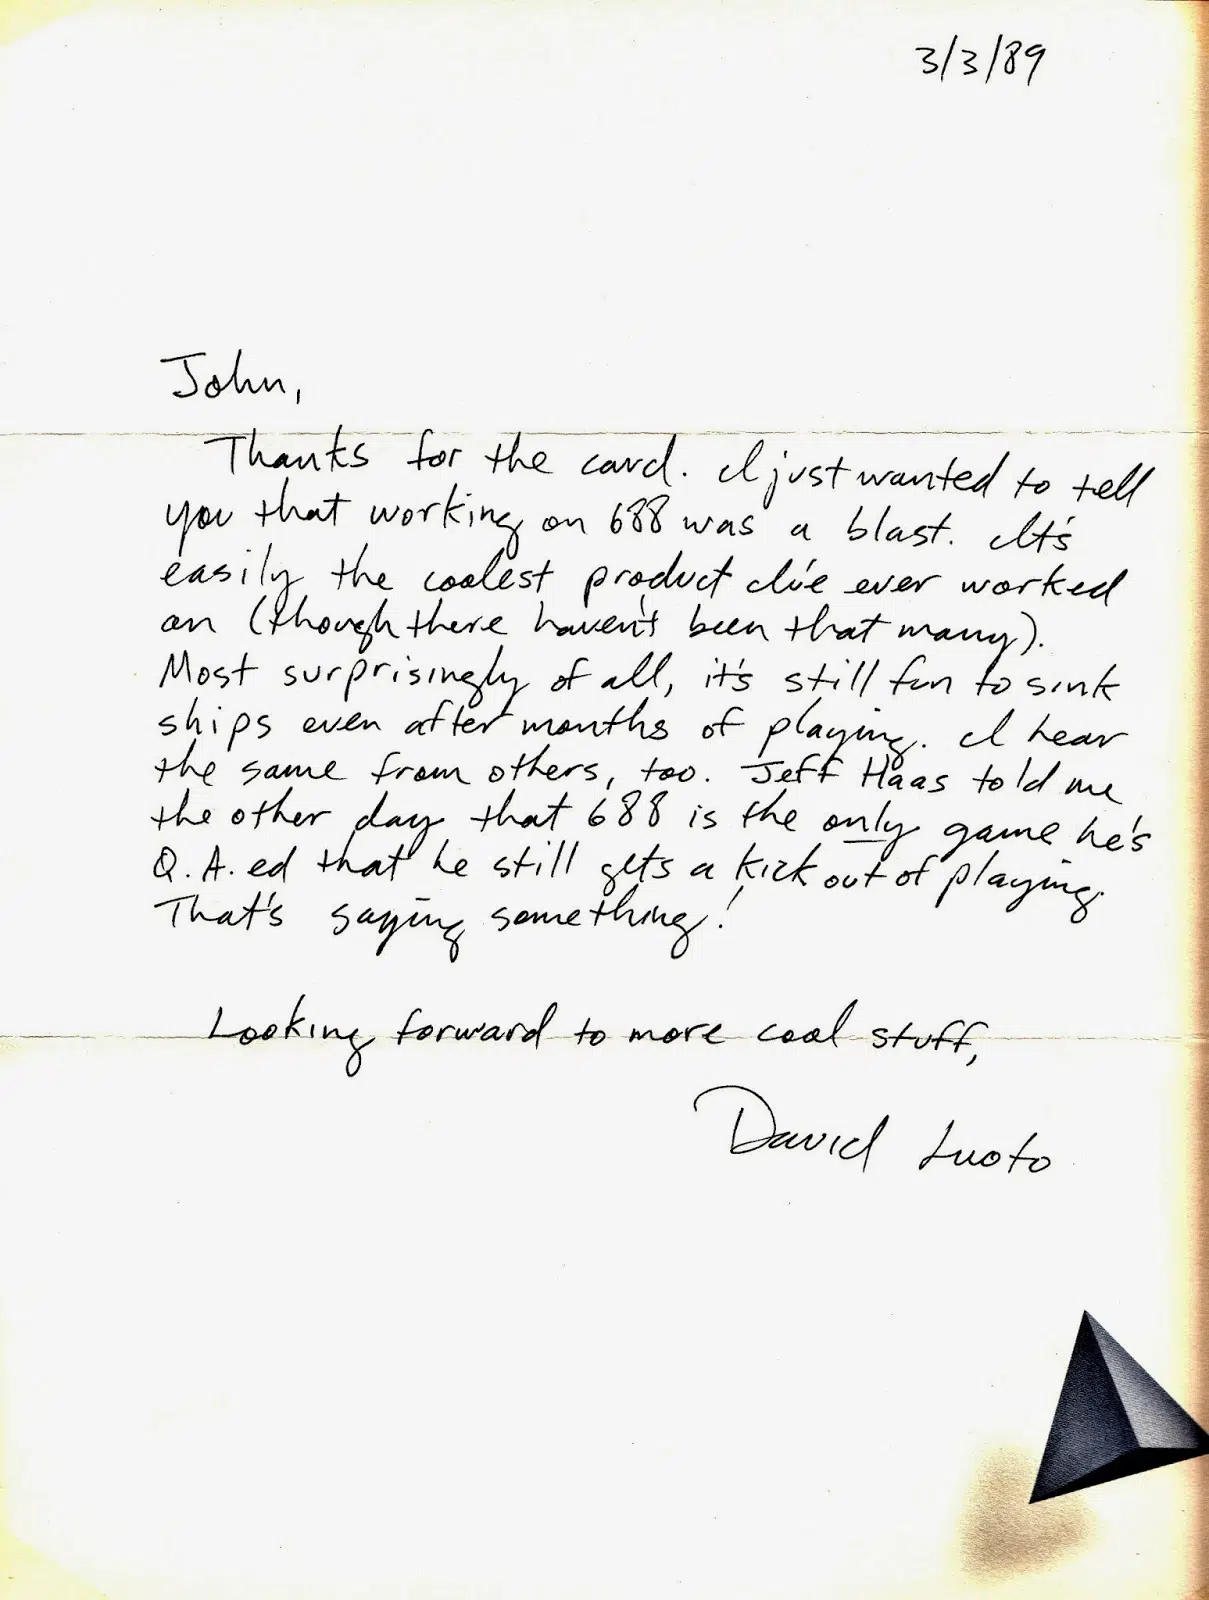 3/3/89
John,
Thanks for the card. I just wanted to tell
you that working on 688 was a blast. It's
easily the coolest product I've ever worked
on (though there haven't been that many).
Most surprisingly of all, it's still fun to sink
ships even after months of playing. I hear
the same from others, too. Jeff Haas told me
the other day that 688 is the only game he's
Q.A.ed that he still gets a kick out of playing.
That's saying something!
Looking forward to more cool stuff,
David Luoto